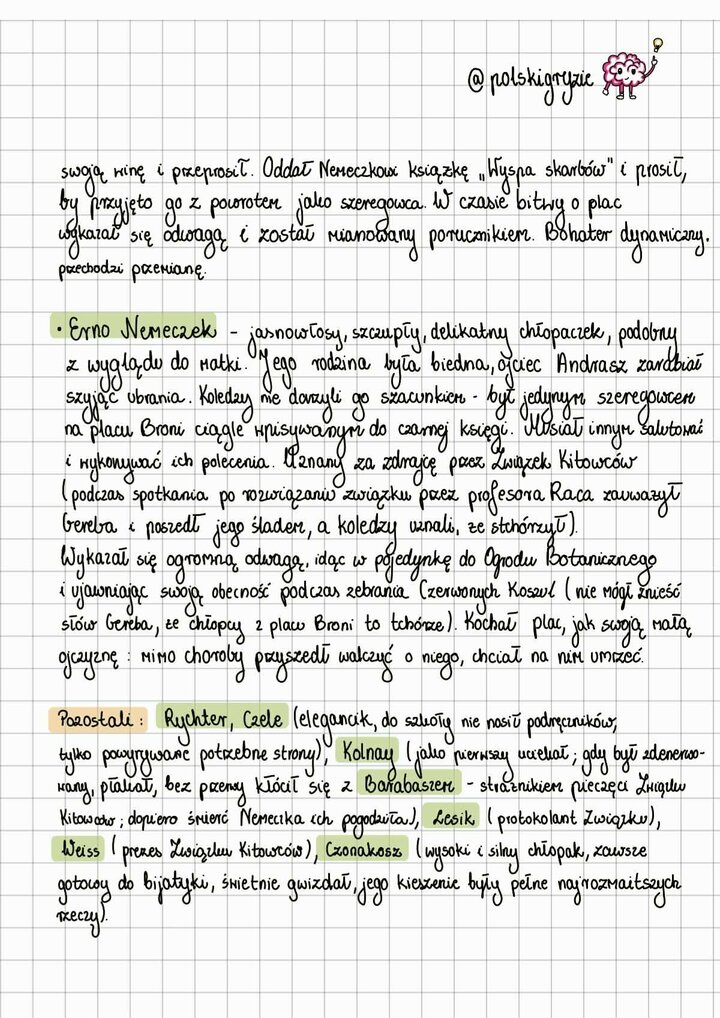 @polskigryzie
swoją winę i przeprosił. Oddał Nemeczkowi książkę „Wyspa skarbów" i prosił,
by przyjęto go z powrotem jako szeregowca. W czasie bitwy o plac
wykazał się odwagą i został mianowany porucznikiem. Bohater dynamiczny.
przechodzi przemianę.
• Erno Nemeczek - jasnowłosy, szczupły, delikatny chłopaczek, podobny
z wyglądu do matki. Jego rodzina była biedna, ojciec Andrasz zarabiał
szyjąc ubrania. Koledzy nie darzyli go szacunkiem - był jedynym szeregowcem
na placu Broni ciągle wpisywanym do czarnej księgi. Musiał innym salutować
i wykonywać ich polecenia. Uznany za zdrajcę przez Związek Kitowców
(podczas spotkania po rozwiązaniu związku przez profesora Raca zauważył
Gereba i poszedł jego śladem, a koledzy uznali, że stchórzył).
Wykazał się ogromną odwagą, idąc w pojedynkę do Ogrodu Botanicznego
i ujawniając swoją obecność podczas zebrania Czerwonych Koszul (nie mógł znieść
słów Gereba, że chłopcy z placu Broni to tchórze). Kochał plac, jak swoją małą
ojczyznę : mimo choroby przyszedł walczyć o niego, chciał na nim umrzeć.
Pozostali : Rychter, Czele (elegancik, do szkoły nie nosił podręczników,
tylko powyrywane potrzebne strony), Kolnay (jako pierwszy uciekał; gdy był zdenerwo-
wany, płakał, bez przerwy kłócił się z Barabaszem - strażnikiem pieczęci Związku
Kitowców; dopiero śmierć Nemeczka ich pogodziła), Lesik (protokolant Związku),
Weiss (prezes Związku Kitowców), Czonakosz (wysoki i silny chłopak, zawsze
gotowy do bijatyki, świetnie gwizdał, jego kieszenie były pełne najrozmaitszych
rzeczy).